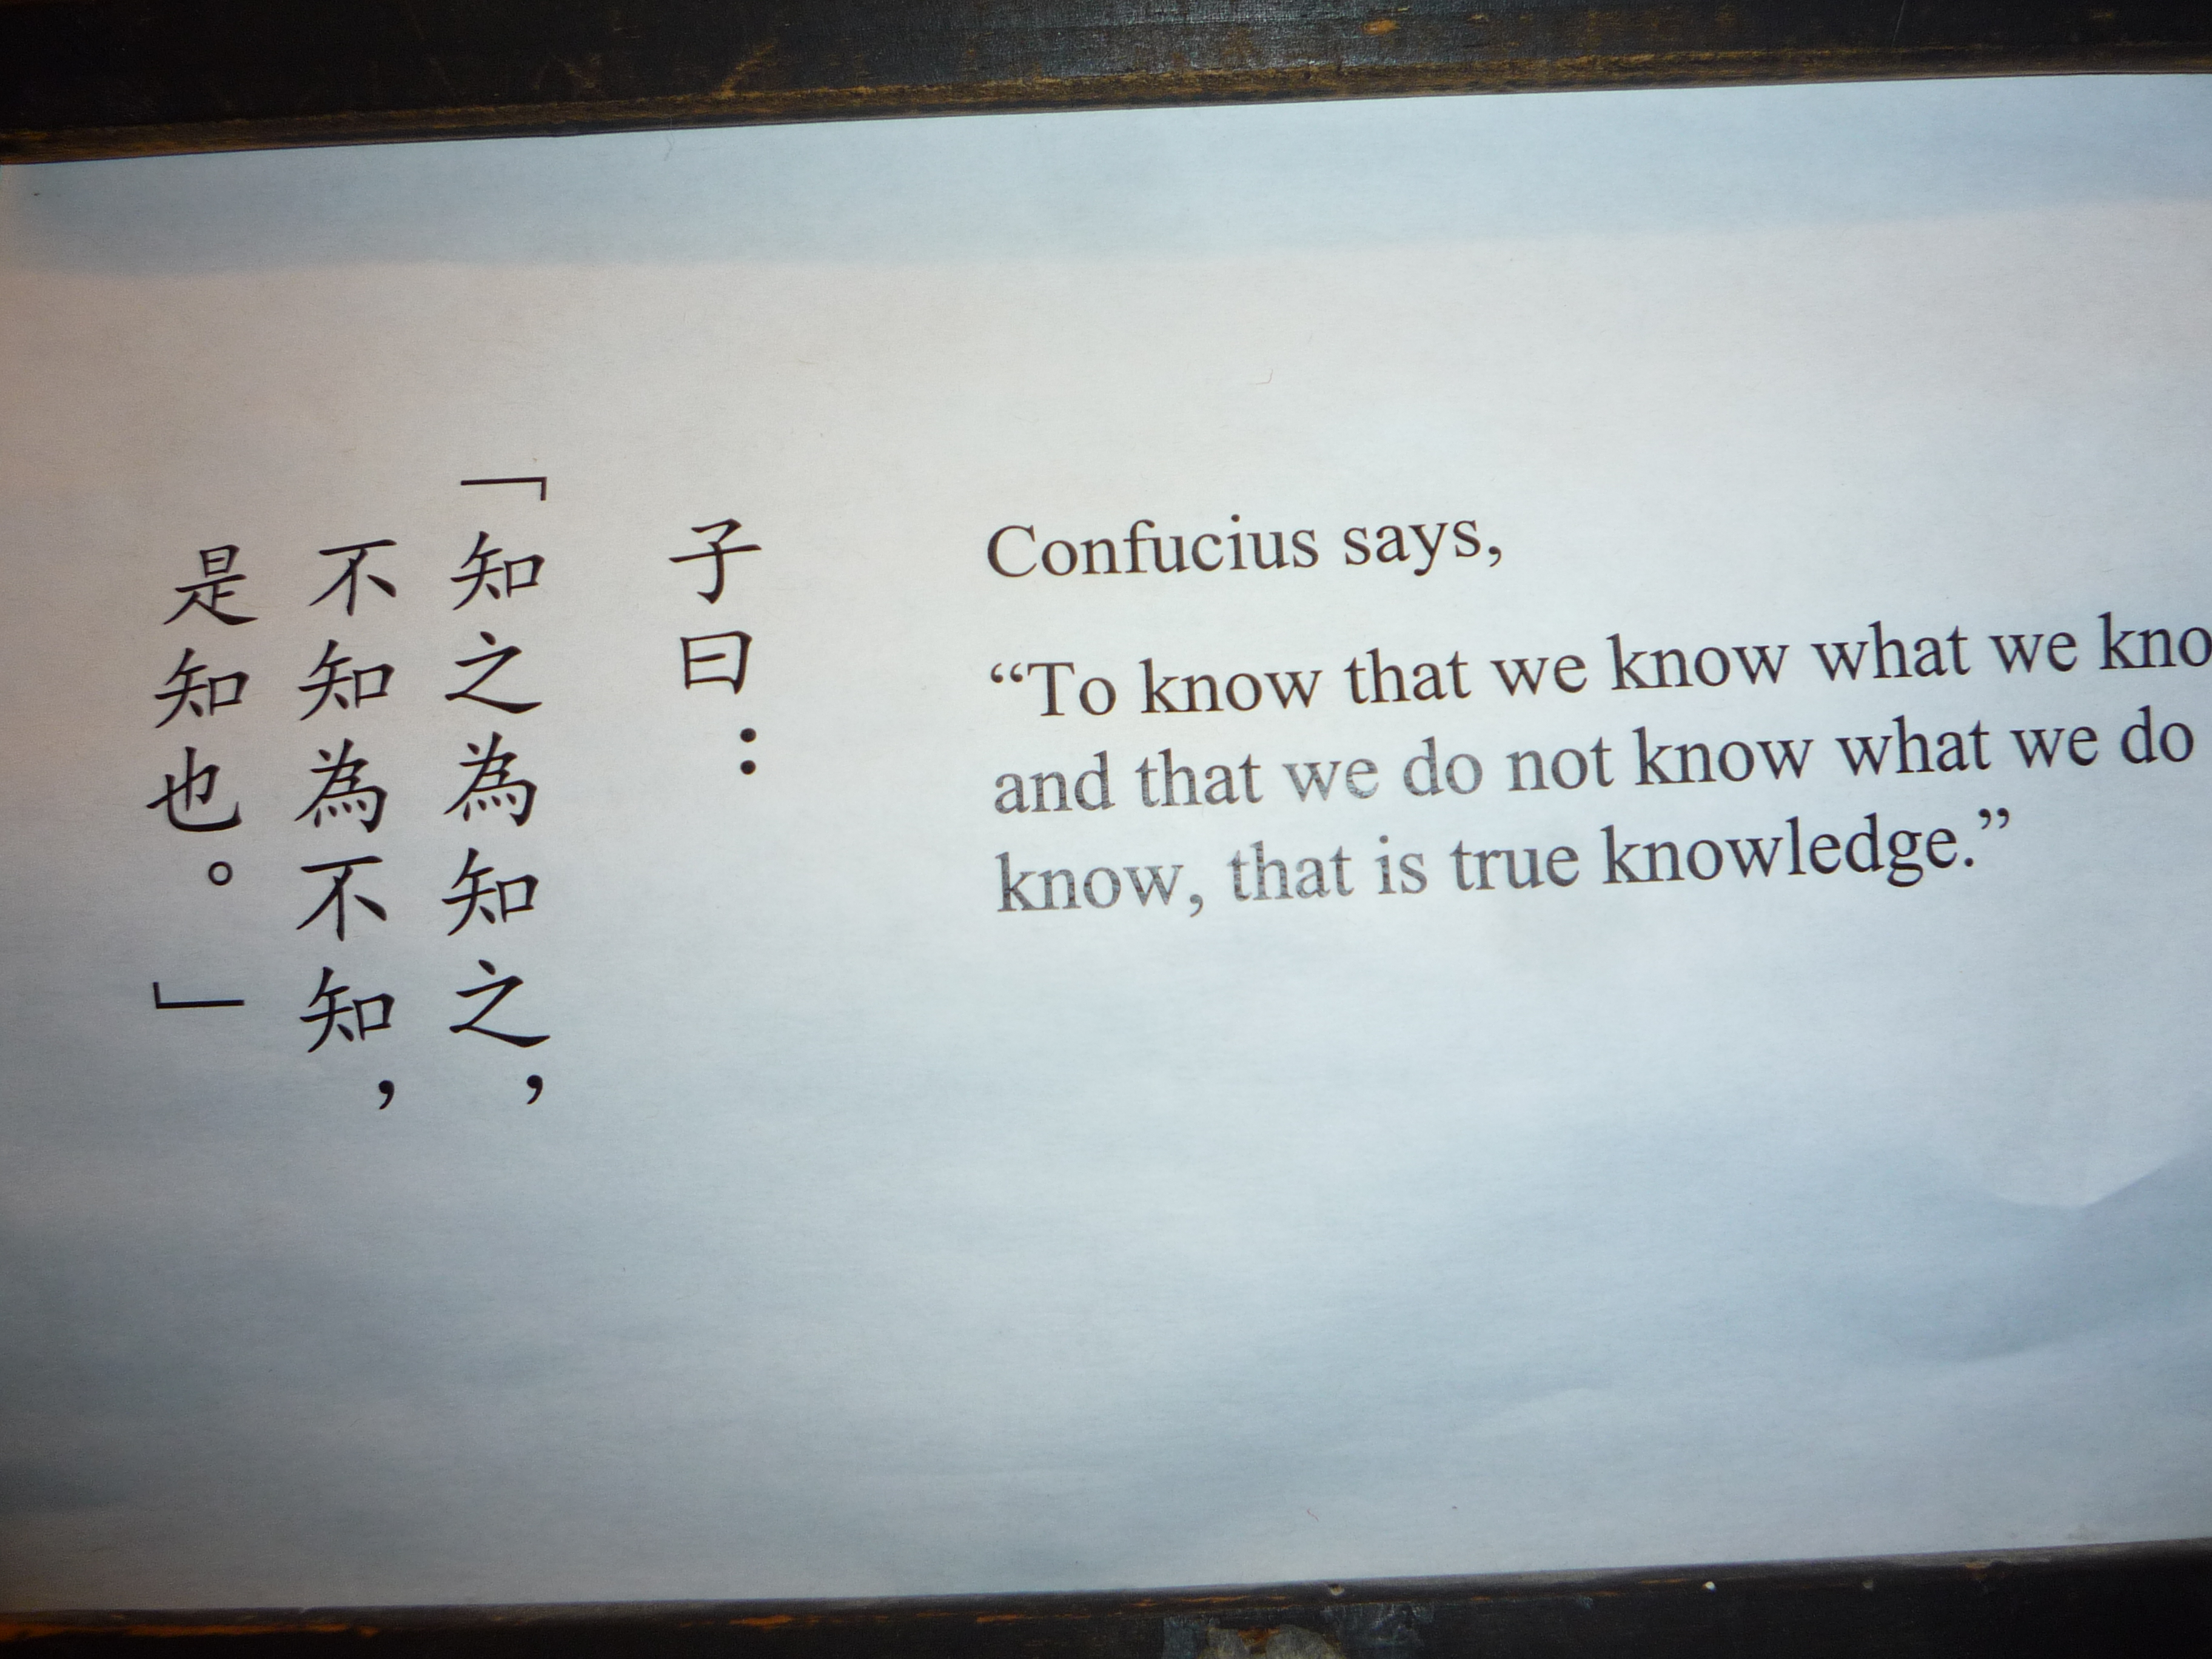 子曰：
「知之為知之，
不知為不知，
是知也。」
Confucius says,
“To know that we know what we kno
and that we do not know what we do
know, that is true knowledge.”